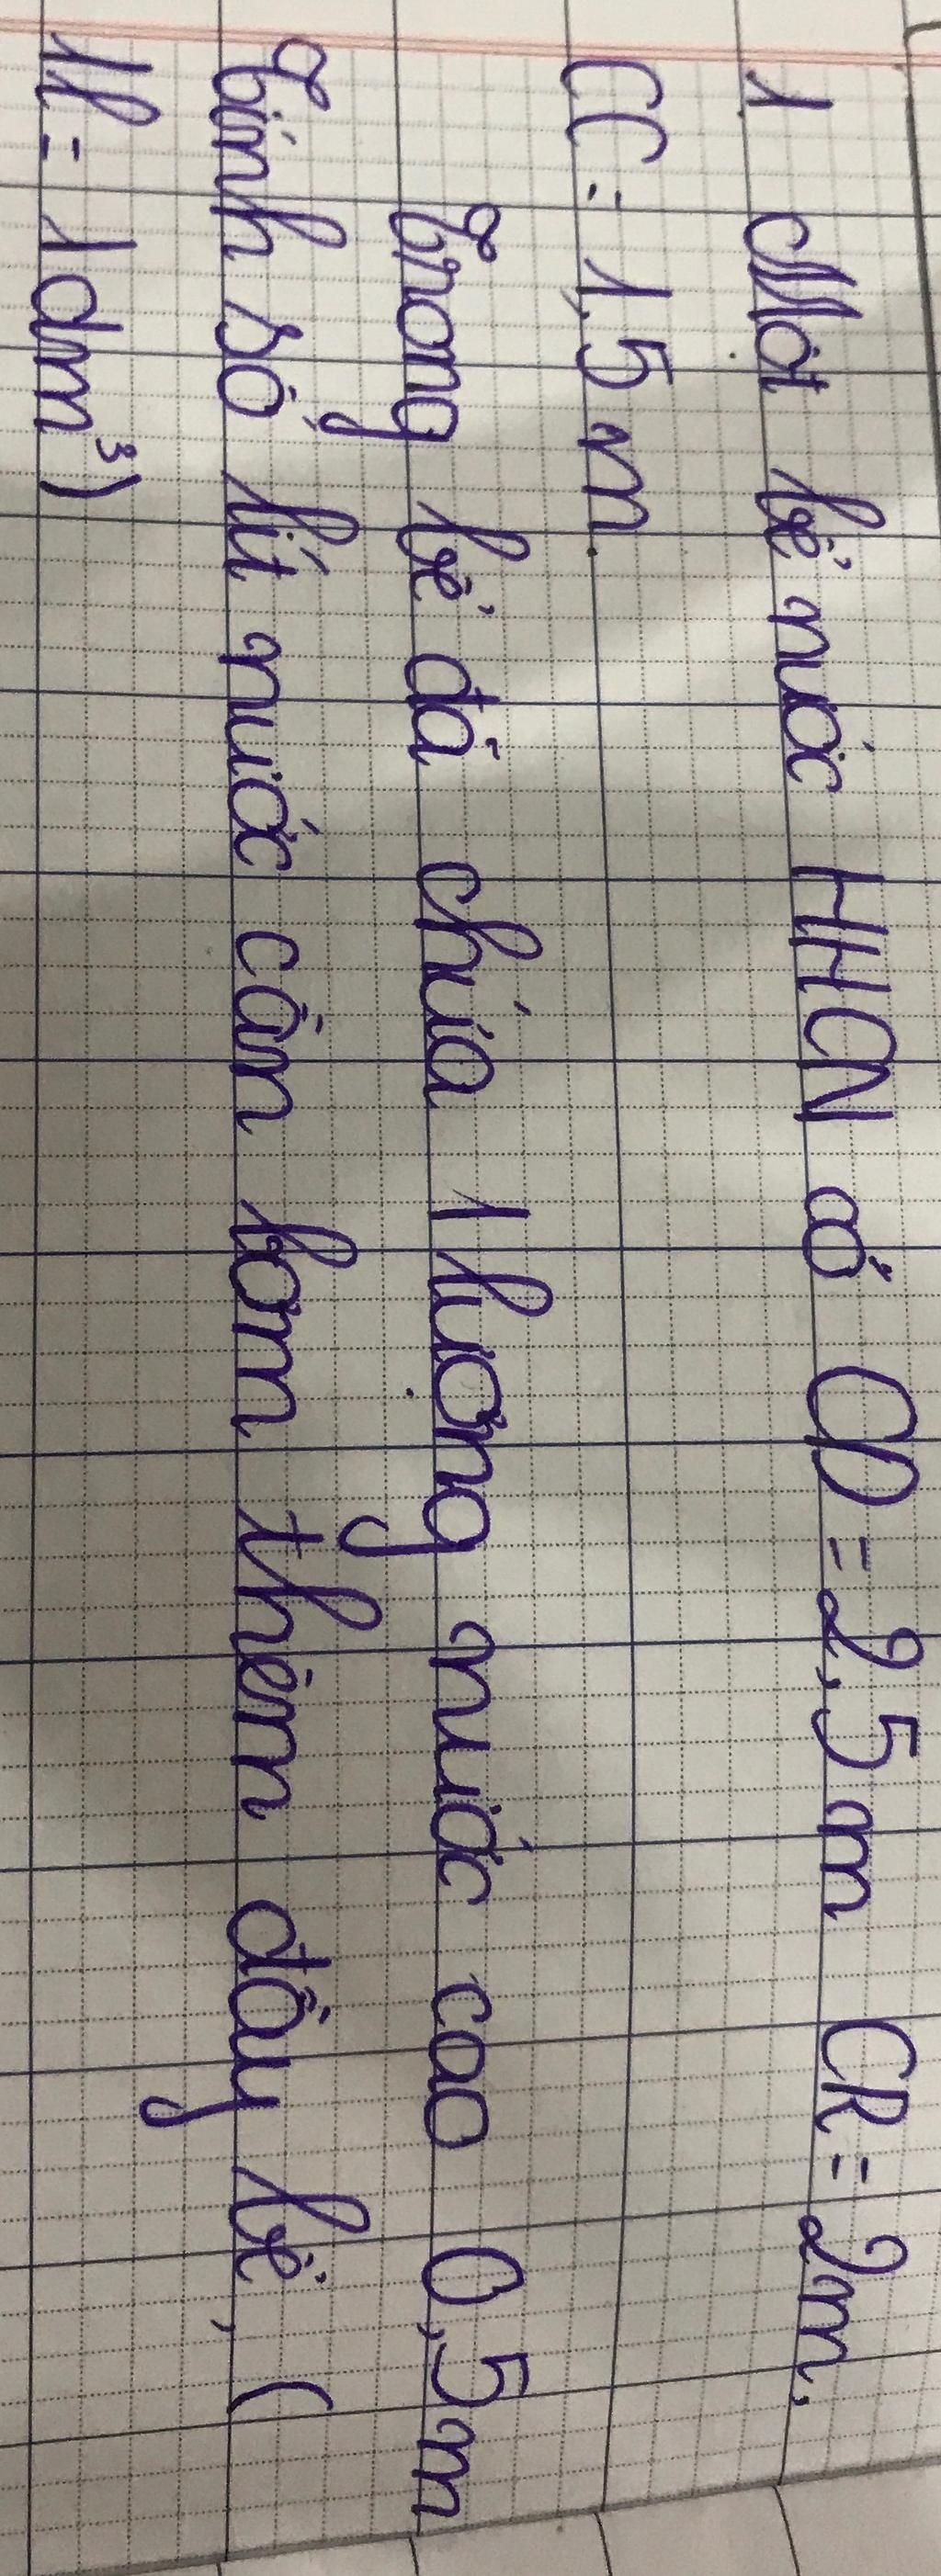 1 Một bể nước HHCN có CD = 2,5 m CR = 2m.
CC = 1,5 m
Trong bể đã chứa 1 lượng nước cao 0,5m
Tính số lít nước cần bơm thêm đầy bể, (
1l = 1dm³)